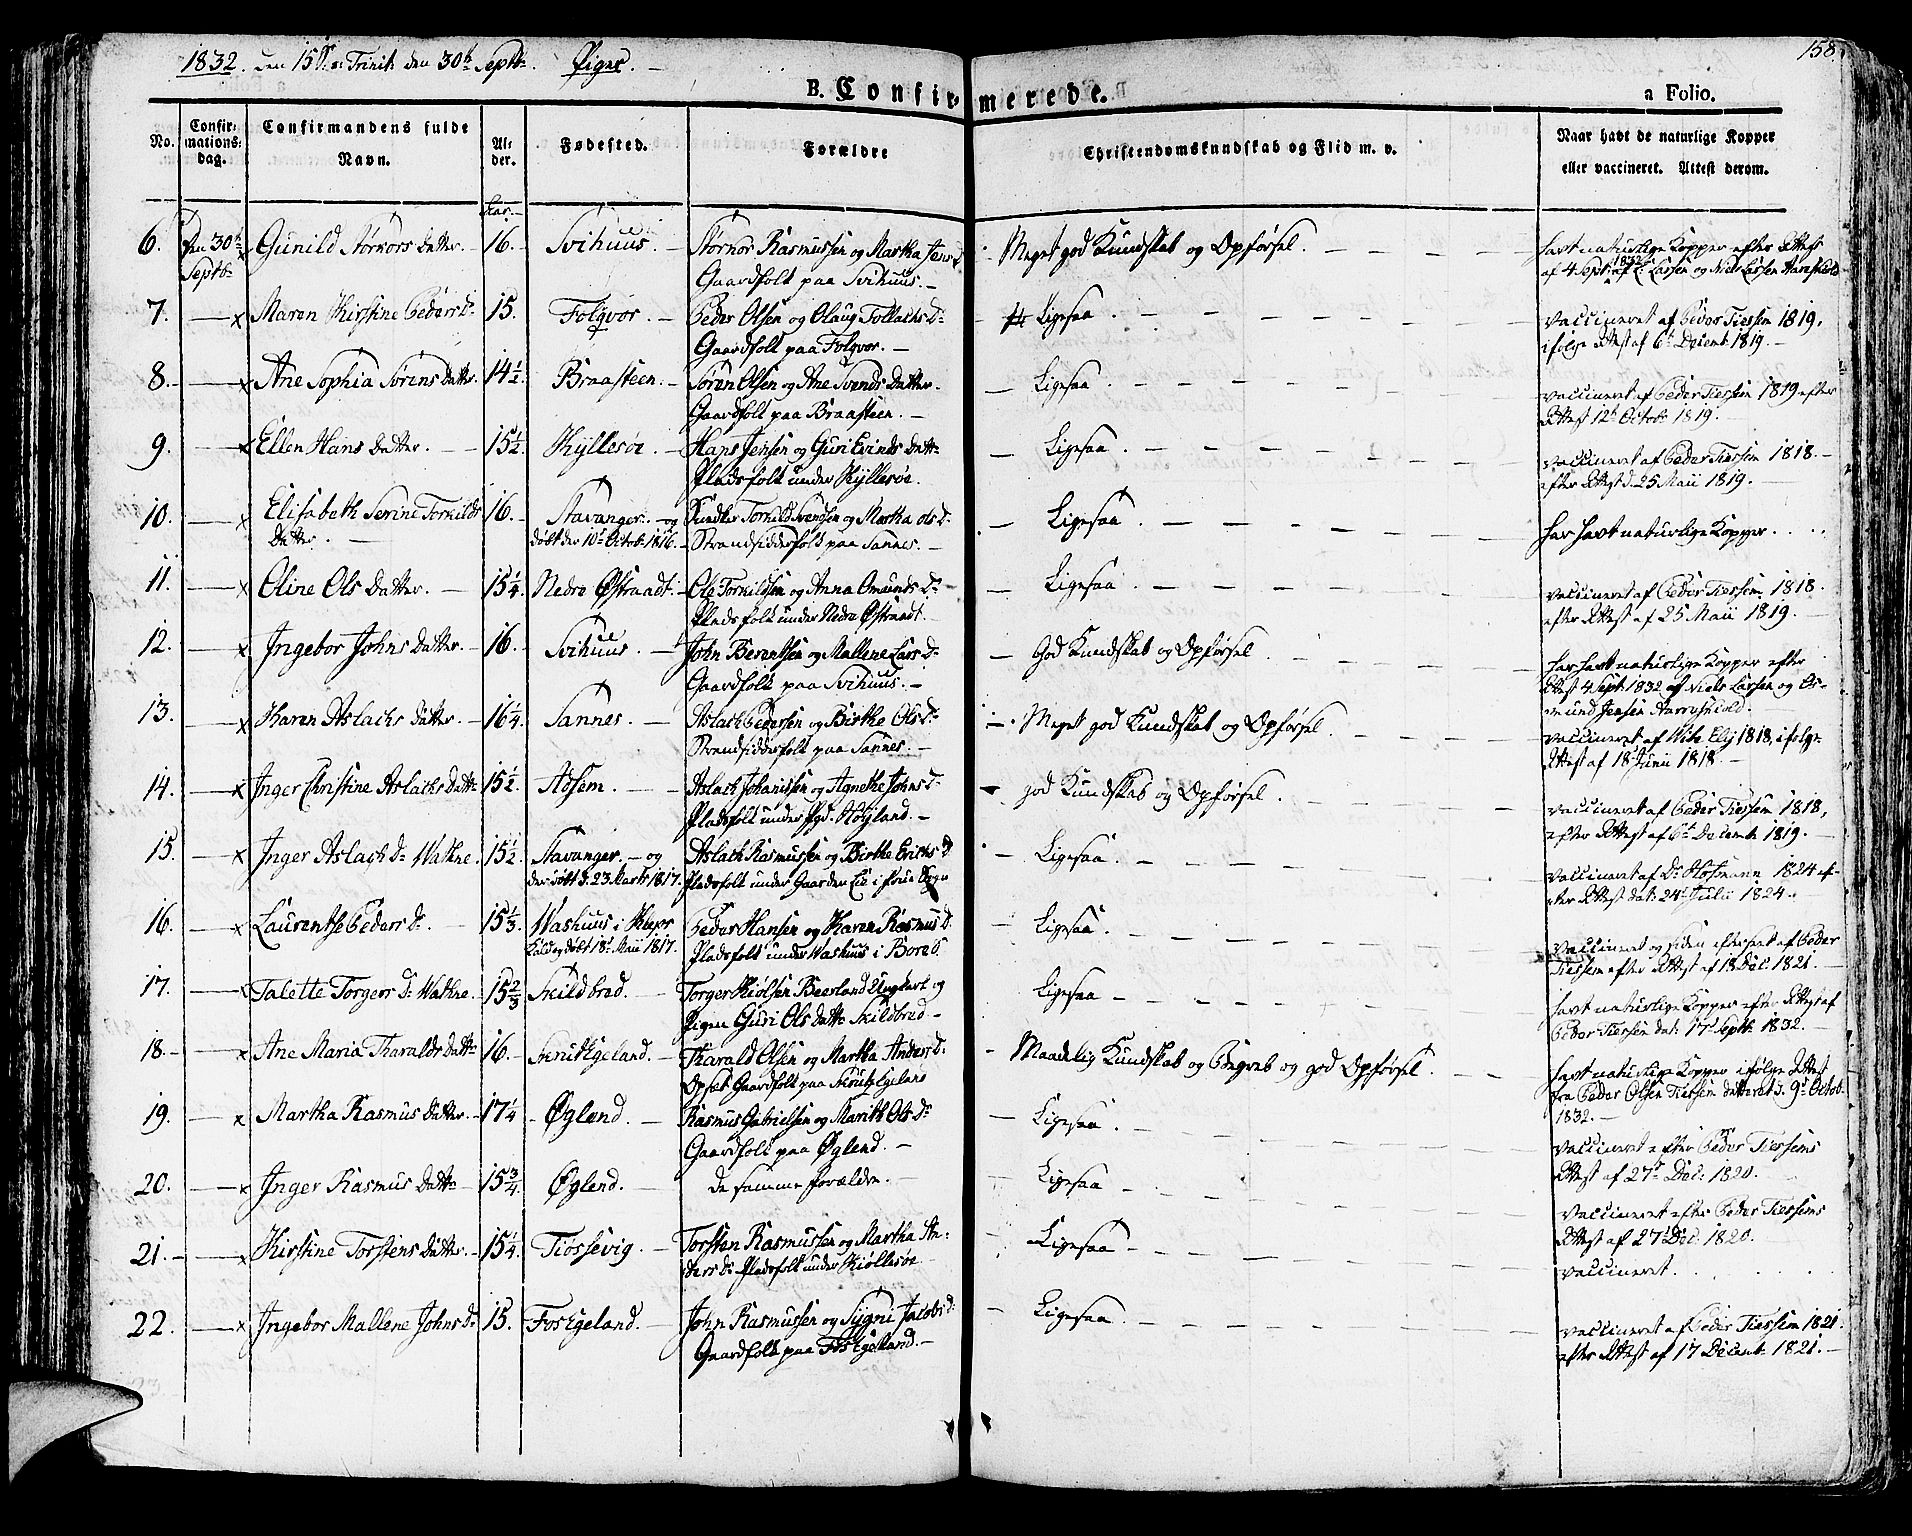 1832. den 15de S. e: Trinit: den 30te Septb. Piger. —
158.
B. Confirmerede.
a Folio.
No.
Confirmations-dag.
Confirmandens fulde Navn.
Alder.
Fødested.
Forældre
Christendomskundskab og Flid m. v.
Naar havt de naturlige Kopper eller vaccineret. Attest derom.
Aar.
6. Den 30te Septb. Gunild Størkors Datter. 16. Svihuus. — Rasmussen og Martha Jens D.
Gaardfolk paa Svihuus. —
Meget god Kundskab og Opførsel.
havt naturlige Kopper efter Attest
af 4 Sept: 1832 af L: Larsen og Niels Larsen
7. — x Maren Kirstine Peders D. 15. Folqvor. — Peder Olsen og Olaug Tollachs D.
Gaardfolk paa Folqvor. —
Ligesaa
vaccineret af Peder Tiessem 1819,
ifølge Attest af 6te Decemb. 1819. —
8. — x Ane Sophia Sørens Datter. 14 1/2 Braasteen. — Søren Olsen og Ane Svends Datter.
Gaardfolk paa Braasteen. —
Ligesaa
vaccineret af Peder Tiessem 1819 efter
Attest 12te Octob: 1819.
9. — x Ellen Hans Datter. — 15 1/2 Kyllesøe. — Hans Jensen og Guri Evinds Datt.
Pladsfolk under Kyllesøe.
Ligesaa
vaccineret af Peder Tiessem 1818. —
efter Attest d. 25 Maii 1819. —
10. — x Elisabeth Serine Torkilds Datter. — 16. Stavanger. — og
døbt der 10de Octob: 1816. — Torkild Svendsen og Martha Ols D.
Strandsidderfolk paa Sannes. —
Ligesaa
har havt naturlige Kopper.
11. — x Oline Ols Datter. — 15 1/4 Nedre Østraadt. — Ole Torkildsen og Anna Omunds D.
Pladsfolk under Nedre Østraadt.
Ligesaa
vaccineret af Peder Tiessem 1818.
efter Attest af 25 Maii 1819. —
12. — x Ingebor Johns Datter. — 16. Svihuus. — John Berentsen og Mallene Lars D.
Gaardfolk paa Svihuus. —
God Kundskab og Opførsel
har havt naturlige Kopper efter
Attest 4 Sept: 1832 af Niels Larsen og Osmund Jensen
13. — x Karen Aslachs Datter. — 16 1/4 Sannes. — Aslach Pedersen og Birthe Ols D.
Strandsidderfolk paa Sannes. —
Meget god Kundskab og Opførsel
vaccineret af 1818, ifølge
Attest af 18 Junii 1818. —
14. — x Inger Christine Aslachs Datt. 15 1/2 Adsem. — Aslach Johanissen og Agnethe Johns D.
Pladsfolk under Høyland. —
god Kundskab og Opførsel.
vaccineret af Peder Tiessem 1818,
efter Attest af 6te Decemb 1819. —
15. — x Inger Aslags D. Wathne. 15 1/2 Stavanger. — og
der døbt d. 23 Marts 1817. Aslach Rasmussen og Birthe Erichs D
Pladsfolk under Gaarden Lie i Frue Sogn
Ligesaa
vaccineret af Dr 1824 efter
Attest dat: 24de Julii 1824.
16. — x Laurentse Peders D. — 15 1/3 Washuus i Klepp
døbt 18de Maii 1817. Peder Hansen og Karen Rasmus D.
Pladsfolk under Washuus i Bore S.
Ligesaa
vaccineret og siden efterseet af Peder
Tiessem efter Attest af 13 Dec: 1821. —
17. — x Talette Torgers D. Wathne. 15 2/3 Skildbred. — Torger Kiølsen Beerland Ungkarl og
Pigen Guri Ols Datt. Skildbred —
Ligesaa
havt naturlige Kopper efter Attest af
Peder Tiessem dat: 17de Septb 1832. —
18. — x Ane Maria Tharalds Datt. 16. Skrudkgeland. Tharald Olsen og Martha Anders D.
Opsat Gaardfolk paa
Maadelig Kundskab og Begreb og god Opførsel.
havt naturlige Kopper ifølge Attest
fra Peder Olsen Tiessem dateret d. 9de Octob.
1832. —
19. — x Martha Rasmus Datter. — 17 1/4 Øglend. Rasmus Gabrielsen og Marith Ols D.
Gaardfolk paa Øglend. —
Ligesaa
vaccineret efter Peder Tiessems
Attest af 27de Dec: 1820. —
20. — x Inger Rasmus Datt. 15 3/4 Øglend. De samme forældre. —
Ligesaa
vaccineret efter Peder Tiessems
Attest af 27de Dec: 1820.
21. — x Kirstine Torstens Datter. — 15 1/4 Tiøssevig. — Torsten Rasmussen og Martha Anders D. Pladsfolk under Kiøllesøe
Ligesaa
vaccineret.
22. — x Ingebor Mallene Johns D. 15. Foskgeland. — John Rasmussen og Sygni Jacobs D.
Gaardfolk paa Foskgeland. —
Ligesaa
vaccineret af Peder Tiessem 1821.
efter Attest af 17 Decemb. 1821. —